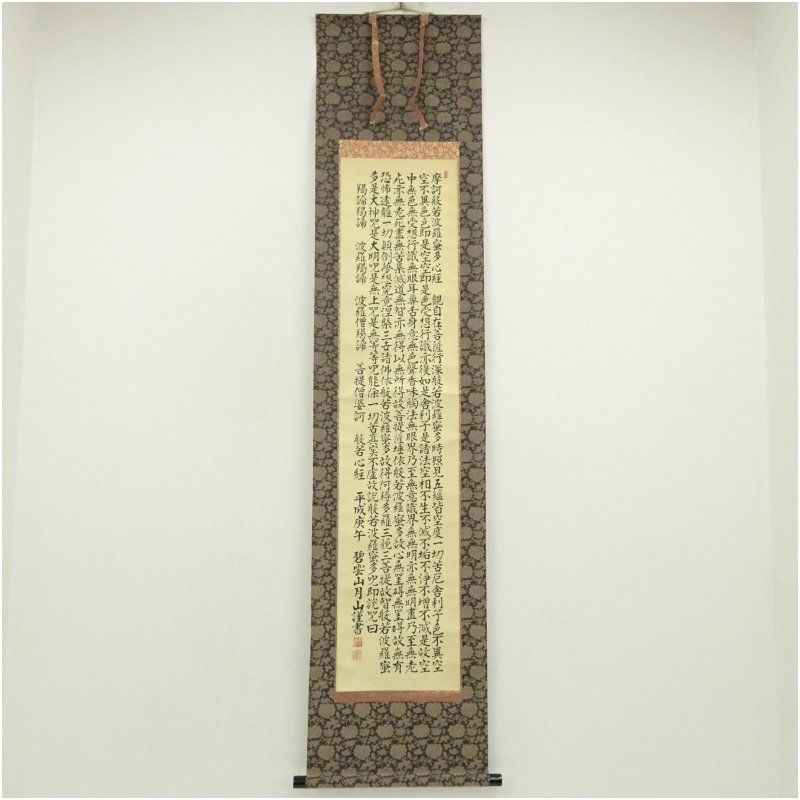 摩訶般若波羅蜜多心経　観自在菩薩行深般若波羅蜜多時照見五蘊皆空度一切苦厄舎利子色不異空
空不異色色即是空空即是色受想行識亦復如是舎利子是諸法空相不生不滅不垢不浄不増不減是故空
中無色無受想行識無眼耳鼻舌身意無色聲香味觸法無眼界乃至無意識界無無明亦無無明盡乃至無老
死亦無老死盡無苦集滅道無智亦無得以無所得故菩提薩埵依般若波羅蜜多故心無罣碍無罣碍故無有
恐怖遠離一切顛倒夢想究竟涅槃三世諸佛依般若波羅蜜多故得阿耨多羅三藐三菩提故知般若波羅蜜
多是大神咒是大明咒是無上咒是無等等咒能除一切苦真実不虚故説般若波羅蜜多咒即説咒曰
羯諦羯諦　波羅羯諦　波羅僧羯諦　菩提僧婆訶　般若心経　平成庚午　碧雲山月山謹書